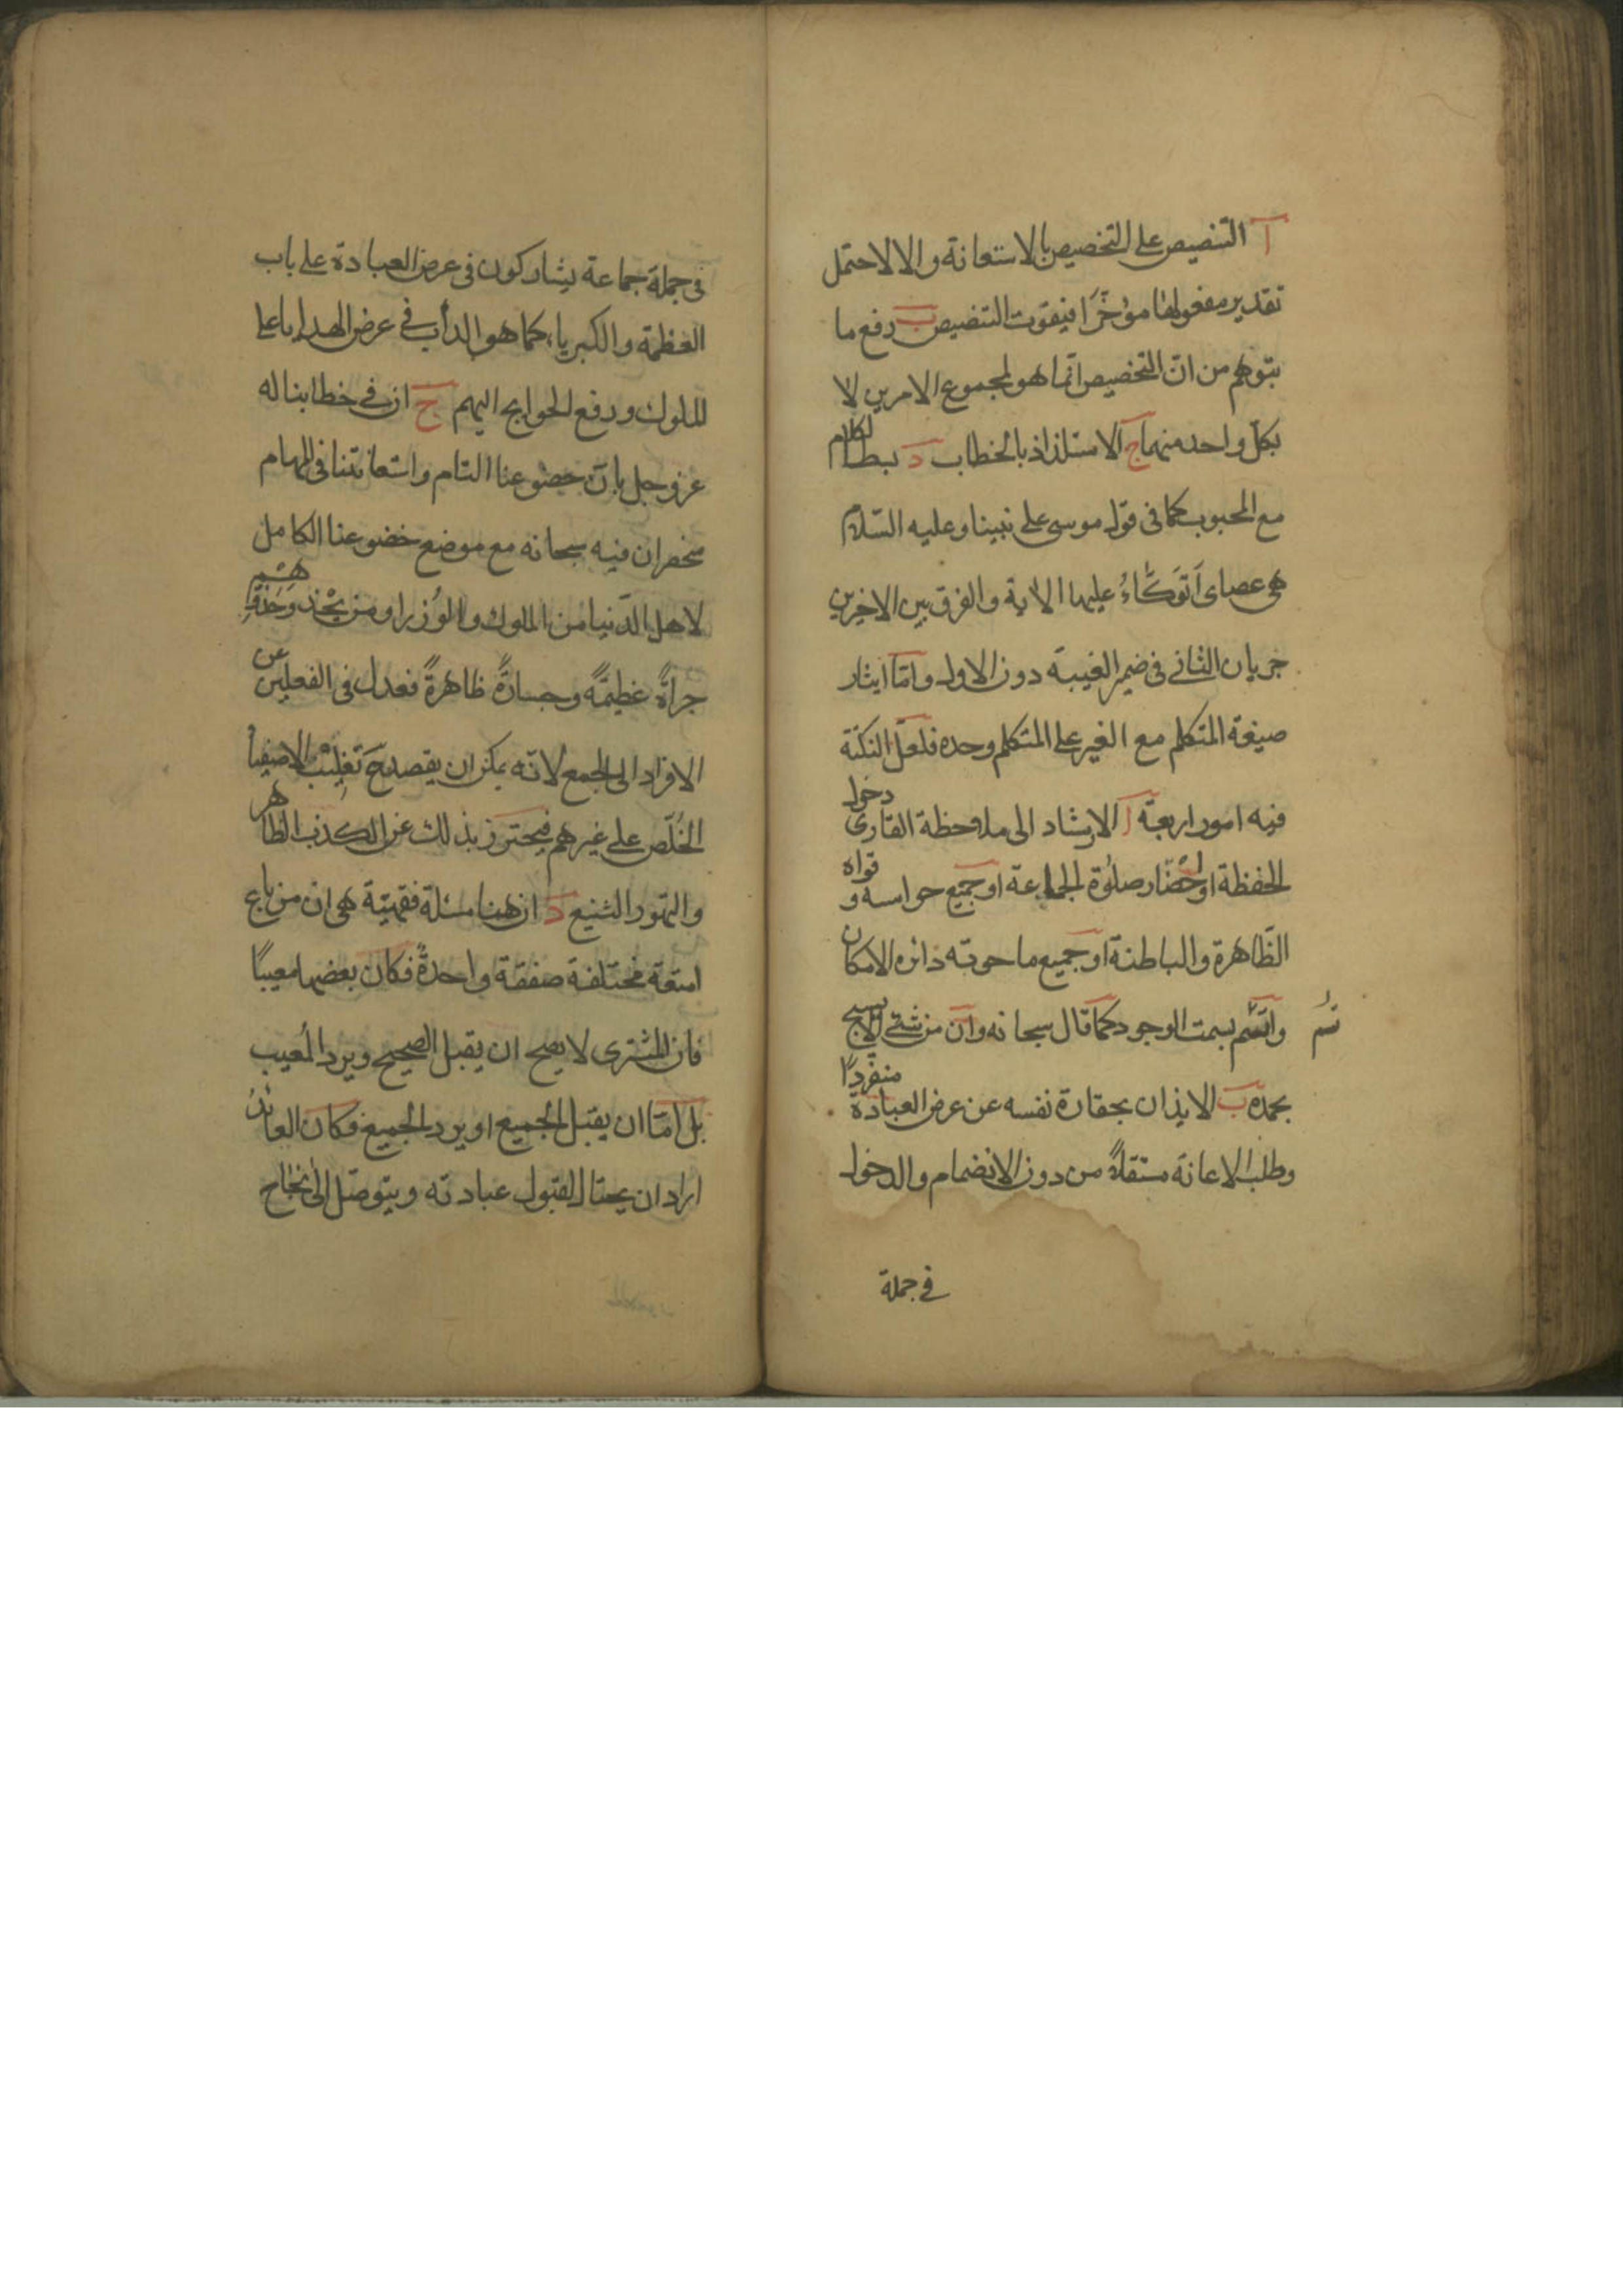 آ التنصيص على التخصيص بالاستعانة والا لاحتمل
تقدير مفعولها مؤخّرا فيفوت التنصيص ب رفع ما
يتوهم من انّ التخصيص انّما هو لمجموع الامرين لا
بكل واحد منهما ج الاستلذاذ بالخطاب د بسط الكلام
مع المحبوب كما فى قول موسى على نبينا وعليه السّلام
هى عصاى اَتَوَكَّاءُ عليها الاية والفرق بين الاخيرين
جريان الثانى فى ضمير الغيبة دون الاول وامّا ايثار
صيغة المتكلم مع الغير على المتكلم وحده فلعلّ النكتة
فيه امور اربعة آ الارشاد الى ملاحظة القارى دخول
الحفظة او حضّار صلوة الجماعة او جميع حواسه و قواه
الظّاهرة والباطنة او جميع ما حوته دائره الامكان
واتّسم بسمت الوجود كما قال سبحانه وان من شئ الا يسبح
بحمده ب الايذان بحقارة نفسه عن عرض العبادة منفردًا
وطلب الاعانة مستقلاً من دون الانضمام والدخول
فى جملة
فى جملة جماعة يشاركون فى عرض العبادة على باب
العظمة والكبرياء كما هو الدأب فى عرض الهدايا على
الملوك ورفع الحوايج اليهم ج ان فى خطابنا له
عز وجل بانّ خضوعنا التام واستعانتنا فى المهام
منحصران فيه سبحانه مع موضع خضوعنا الكامل
لاهل الدّنيا من الملوك والوُزرا ومن يحْذ وحَذْوَهُم
جرأةً عظيمةً وجسارةً ظاهرةً فعدل فى الفعلين عن
الافراد الى الجمع لانه يمكن ان يقصد ح تغليب الاصفيا
الخُلّص على غيرهم فيحترز بذلك عن الكذب الظاهر
والتهور الشنيع د ان هنا مسئلة فقهيّة هى ان من باع
امتعة مختلفة صفقة واحدةً فكان بعضها معيبًا
فان المشترى لا يصح ان يقبل الصحيح ويرد المعيب
بل امّا ان يقبل الجميع او يرد الجميع فكان العابد
اراد ان يحتال لقبول عبادته ويتوصّل الى انجاح